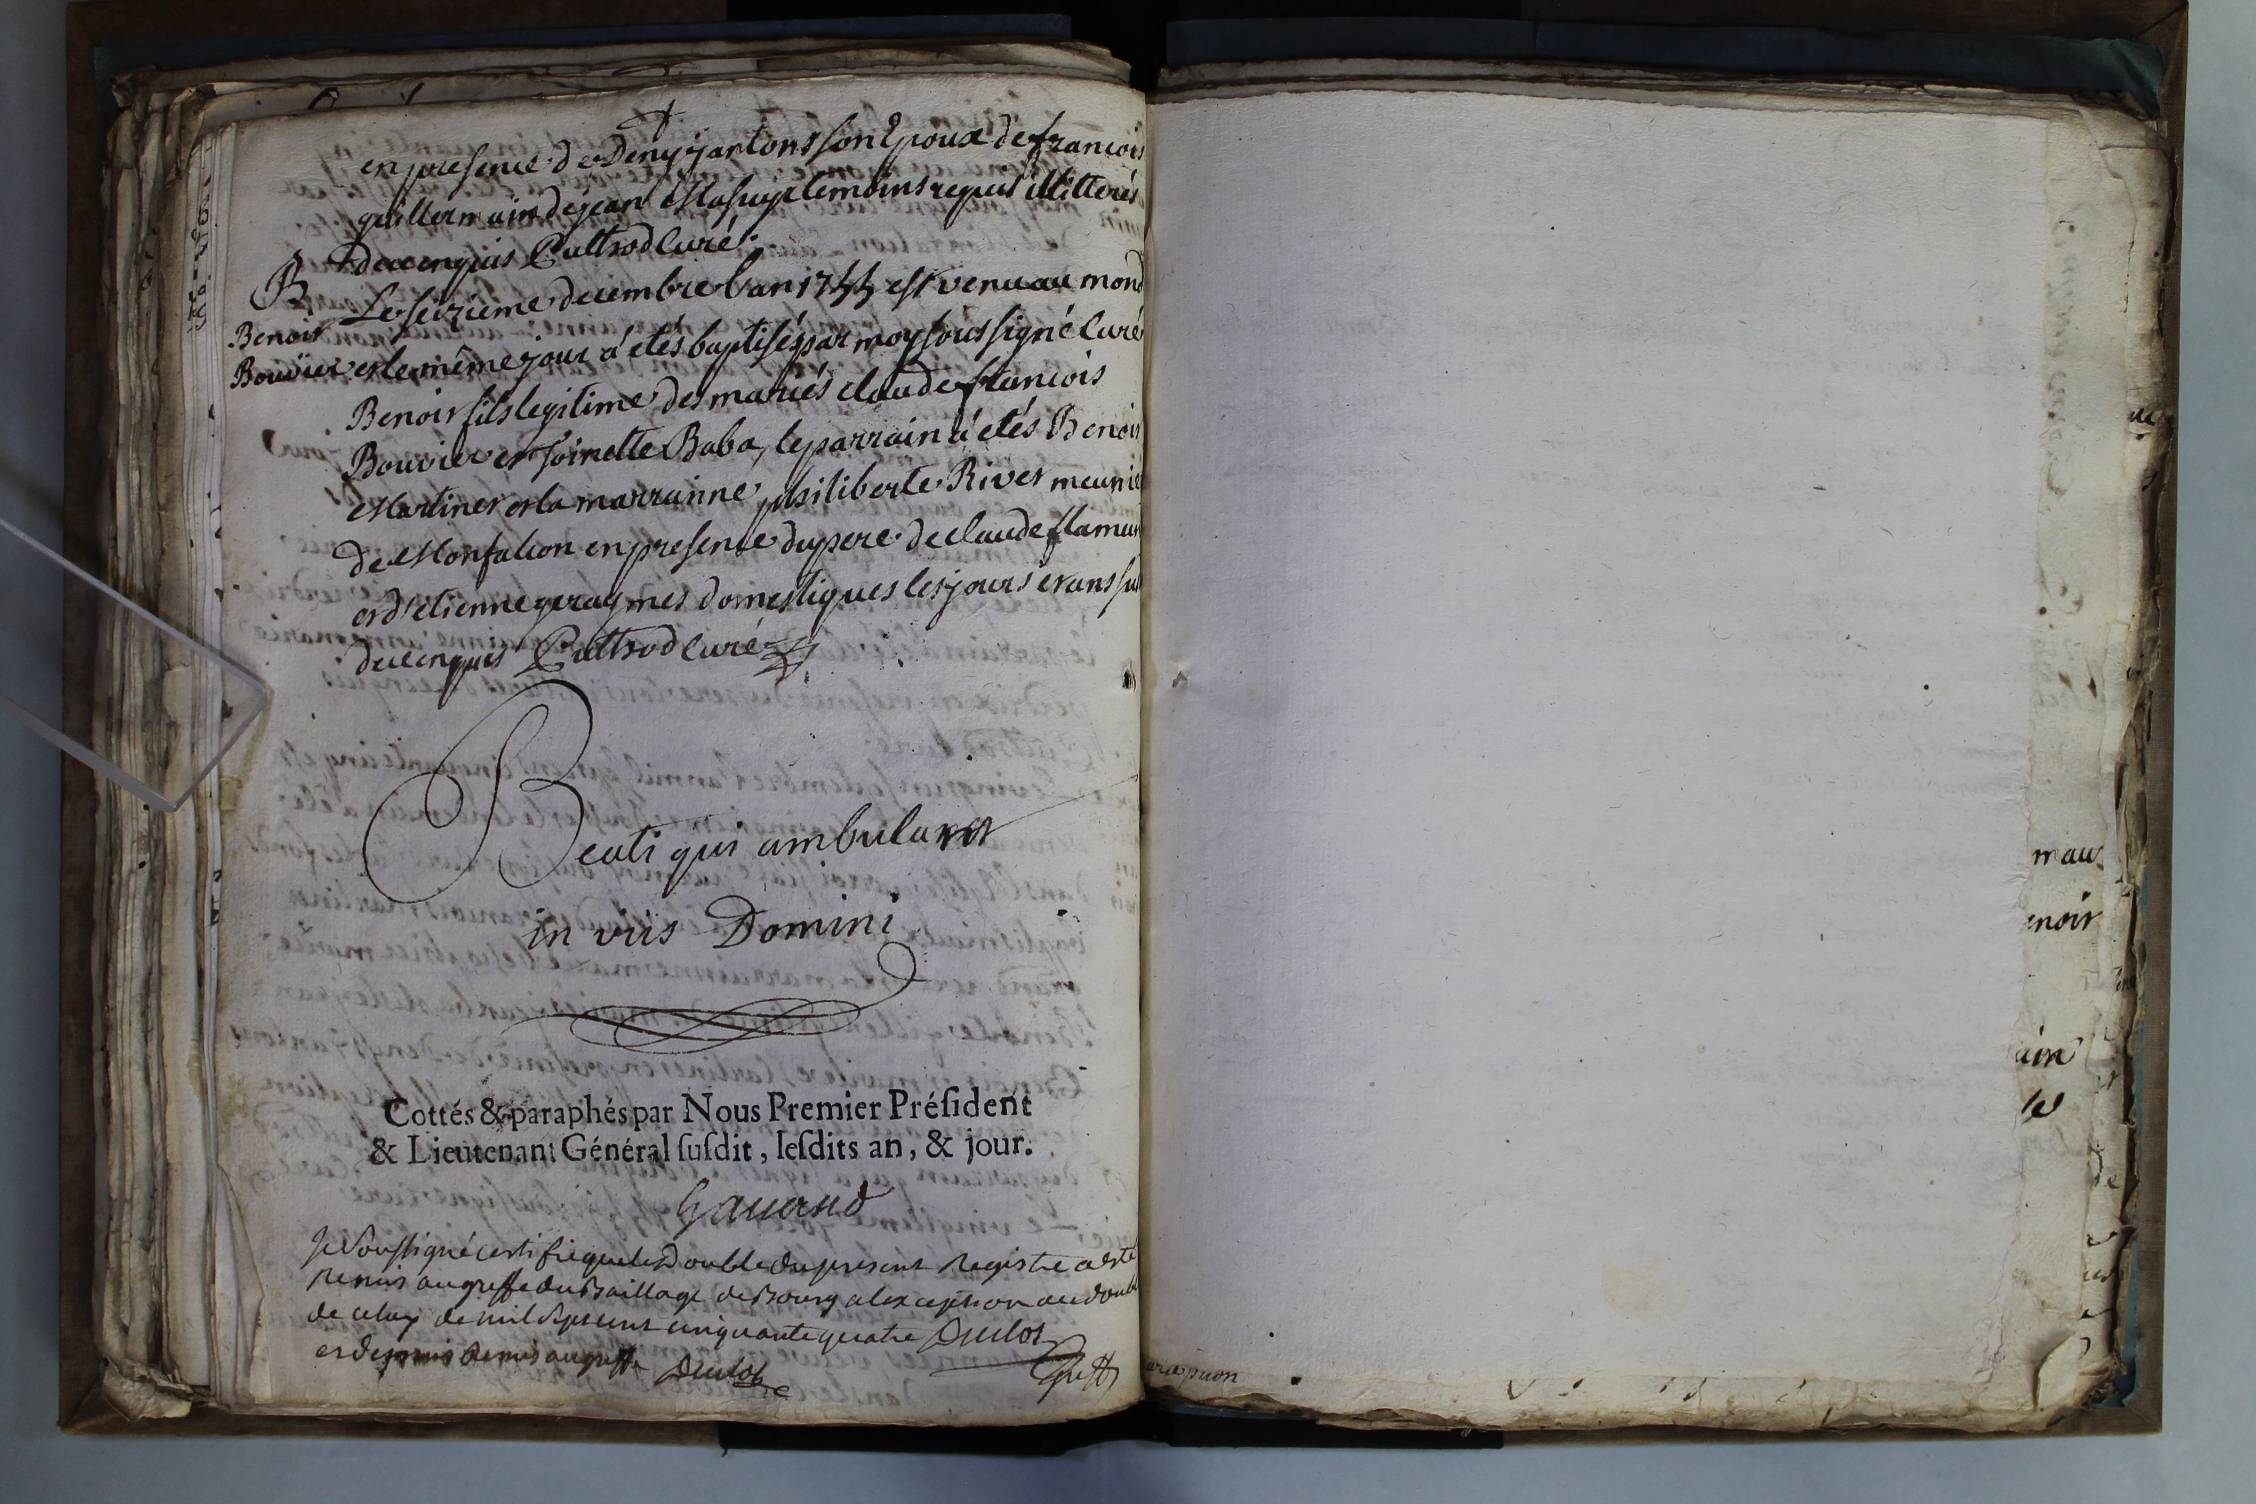 en presence de Deny jantons son Epoux de francois
guillermain de jean Masuyr temoins requis illitterés
de ce enquis Cuttrod Curé
B Le seizieme decembre l'an 1755 est venu au mond
Benoir
Bouvier et le même jour a etés baptisés par moy soussigné Curé
Benoir fils legitime des mariés claude francois
Bouvier et Toinette Baba, le parrain a etés Benoir
Martiner et la marrainne philiberte River meunie
de Monfalcon en presence du pere de claude flamand
et d'etienne geray mes domestiques les jours et ans sus
de ce enquis Cuttrod Curé
Beati qui ambulant
in viis Domini
Cottés & paraphés par Nous Premier Préſident
& Lieutenant Général ſuſdit, leſdits an, & jour.
Gauand
Je soussigné certifie que le Double du present Registre a esté
Remis au greffe du Baillage de Bourg a lexception du doubl
de celuy de mil sept cent cinquante quatre Duclos
et depuis Remis au greffe Duclos
Greff
mau
enoir
ain
de